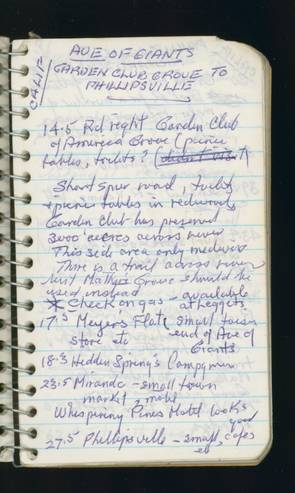 CALIF
AVE OF GIANTS
GARDEN CLUB GROVE TO
PHILLIPSVILLE
14.5 Rd right Garden Club
of America Grove (picnic
tables, toilets? didn't visit)
Short spur road, toilets
+ picnic tables in redwoods
Garden Club has preserved
3000 acres across river
This side area only mediocre
There is a trail across river
Grove should be
used instead
* Check on gas - available
at Leggett
17.3 Meyers Flat, small town
store etc end of Ave of
Giants
18.3 Hidden Springs Campground
23.5 Miranda - small town
market, motel
Whispering Pines Motel looks
good
27.5 Phillipsville - small, cafes